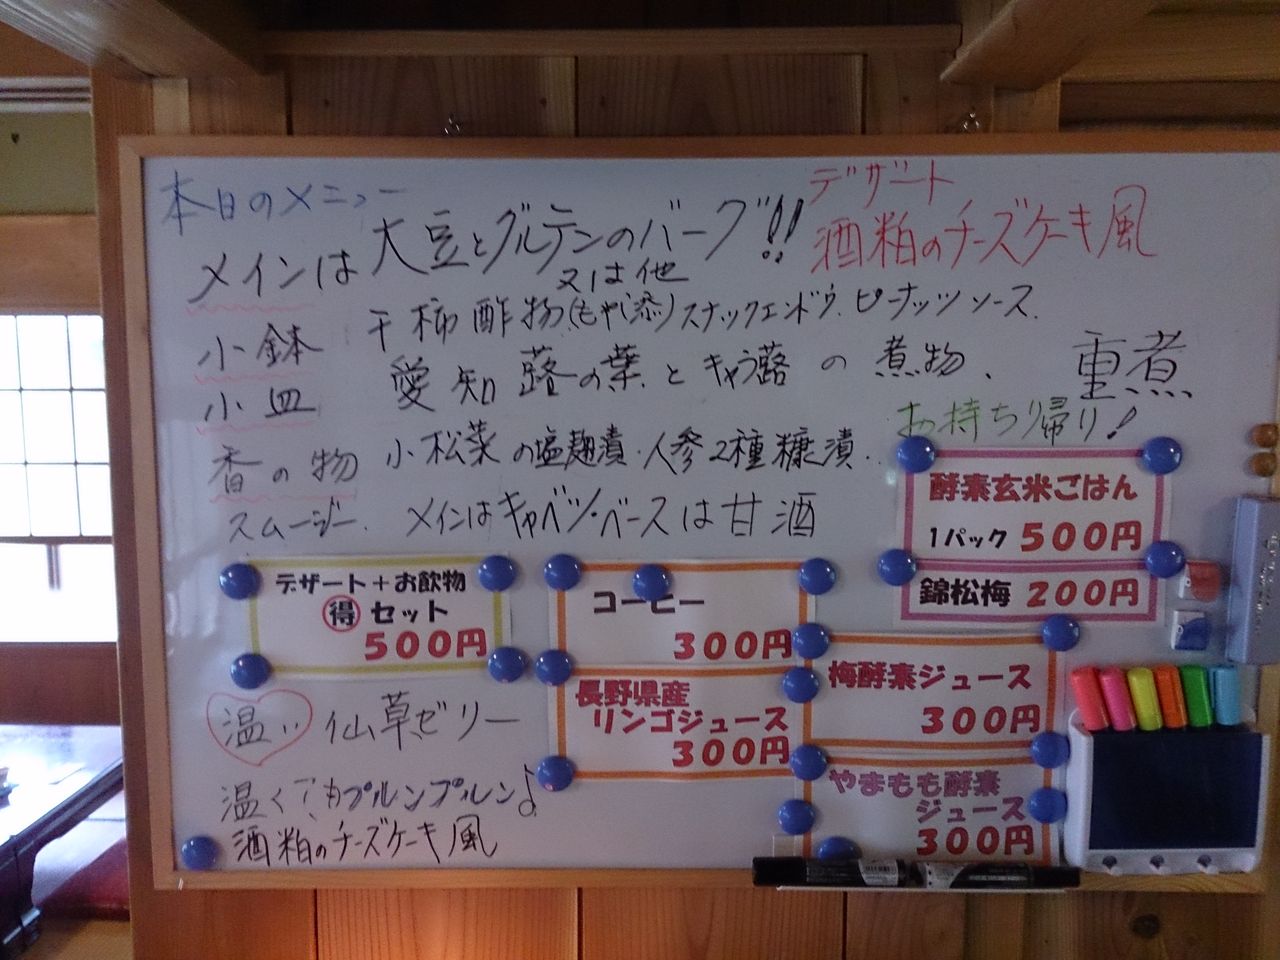 本日のメニュー
メインは 大豆とグルテンのバーグ!!
又は他
デザート
酒粕のチーズケーキ風
小鉢 干柿酢物(もやし添) スナックエンドウ ピーナッツソース.
小皿 愛知蕗の葉とキャラ蕗の煮物、重煮
香の物 小松菜の塩麹漬・人参2種糠漬.
スムージー. メインはキャベツ・ベースは甘酒
お持ち帰り!
酵素玄米ごはん
1パック 500円
錦松梅 200円
デザート+お飲物
得 セット
500円
コーヒー
300円
長野県産
リンゴジュース
300円
梅酵素ジュース
300円
やまもも酵素
ジュース
300円
温い 仙草ゼリー
温くてもプルンプルン♪
酒粕のチーズケーキ風